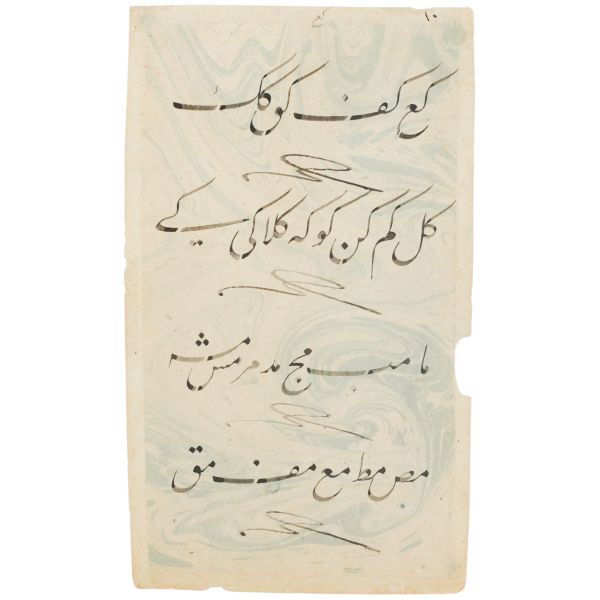 ١٠
کع کف کق کك
کل کم کن کو که کلا کی کے
ما مب مج مد مر مس مسه
مص مط مع مف مق